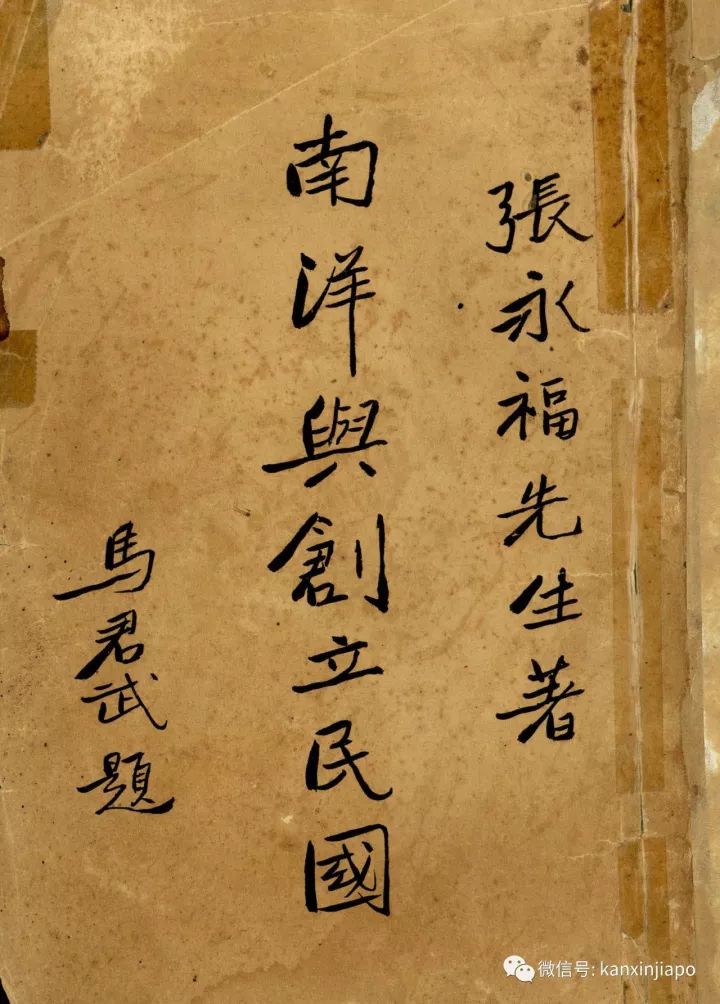 張永福先生著
南洋與創立民國
馬君武題
微信号: kanxinjiapo